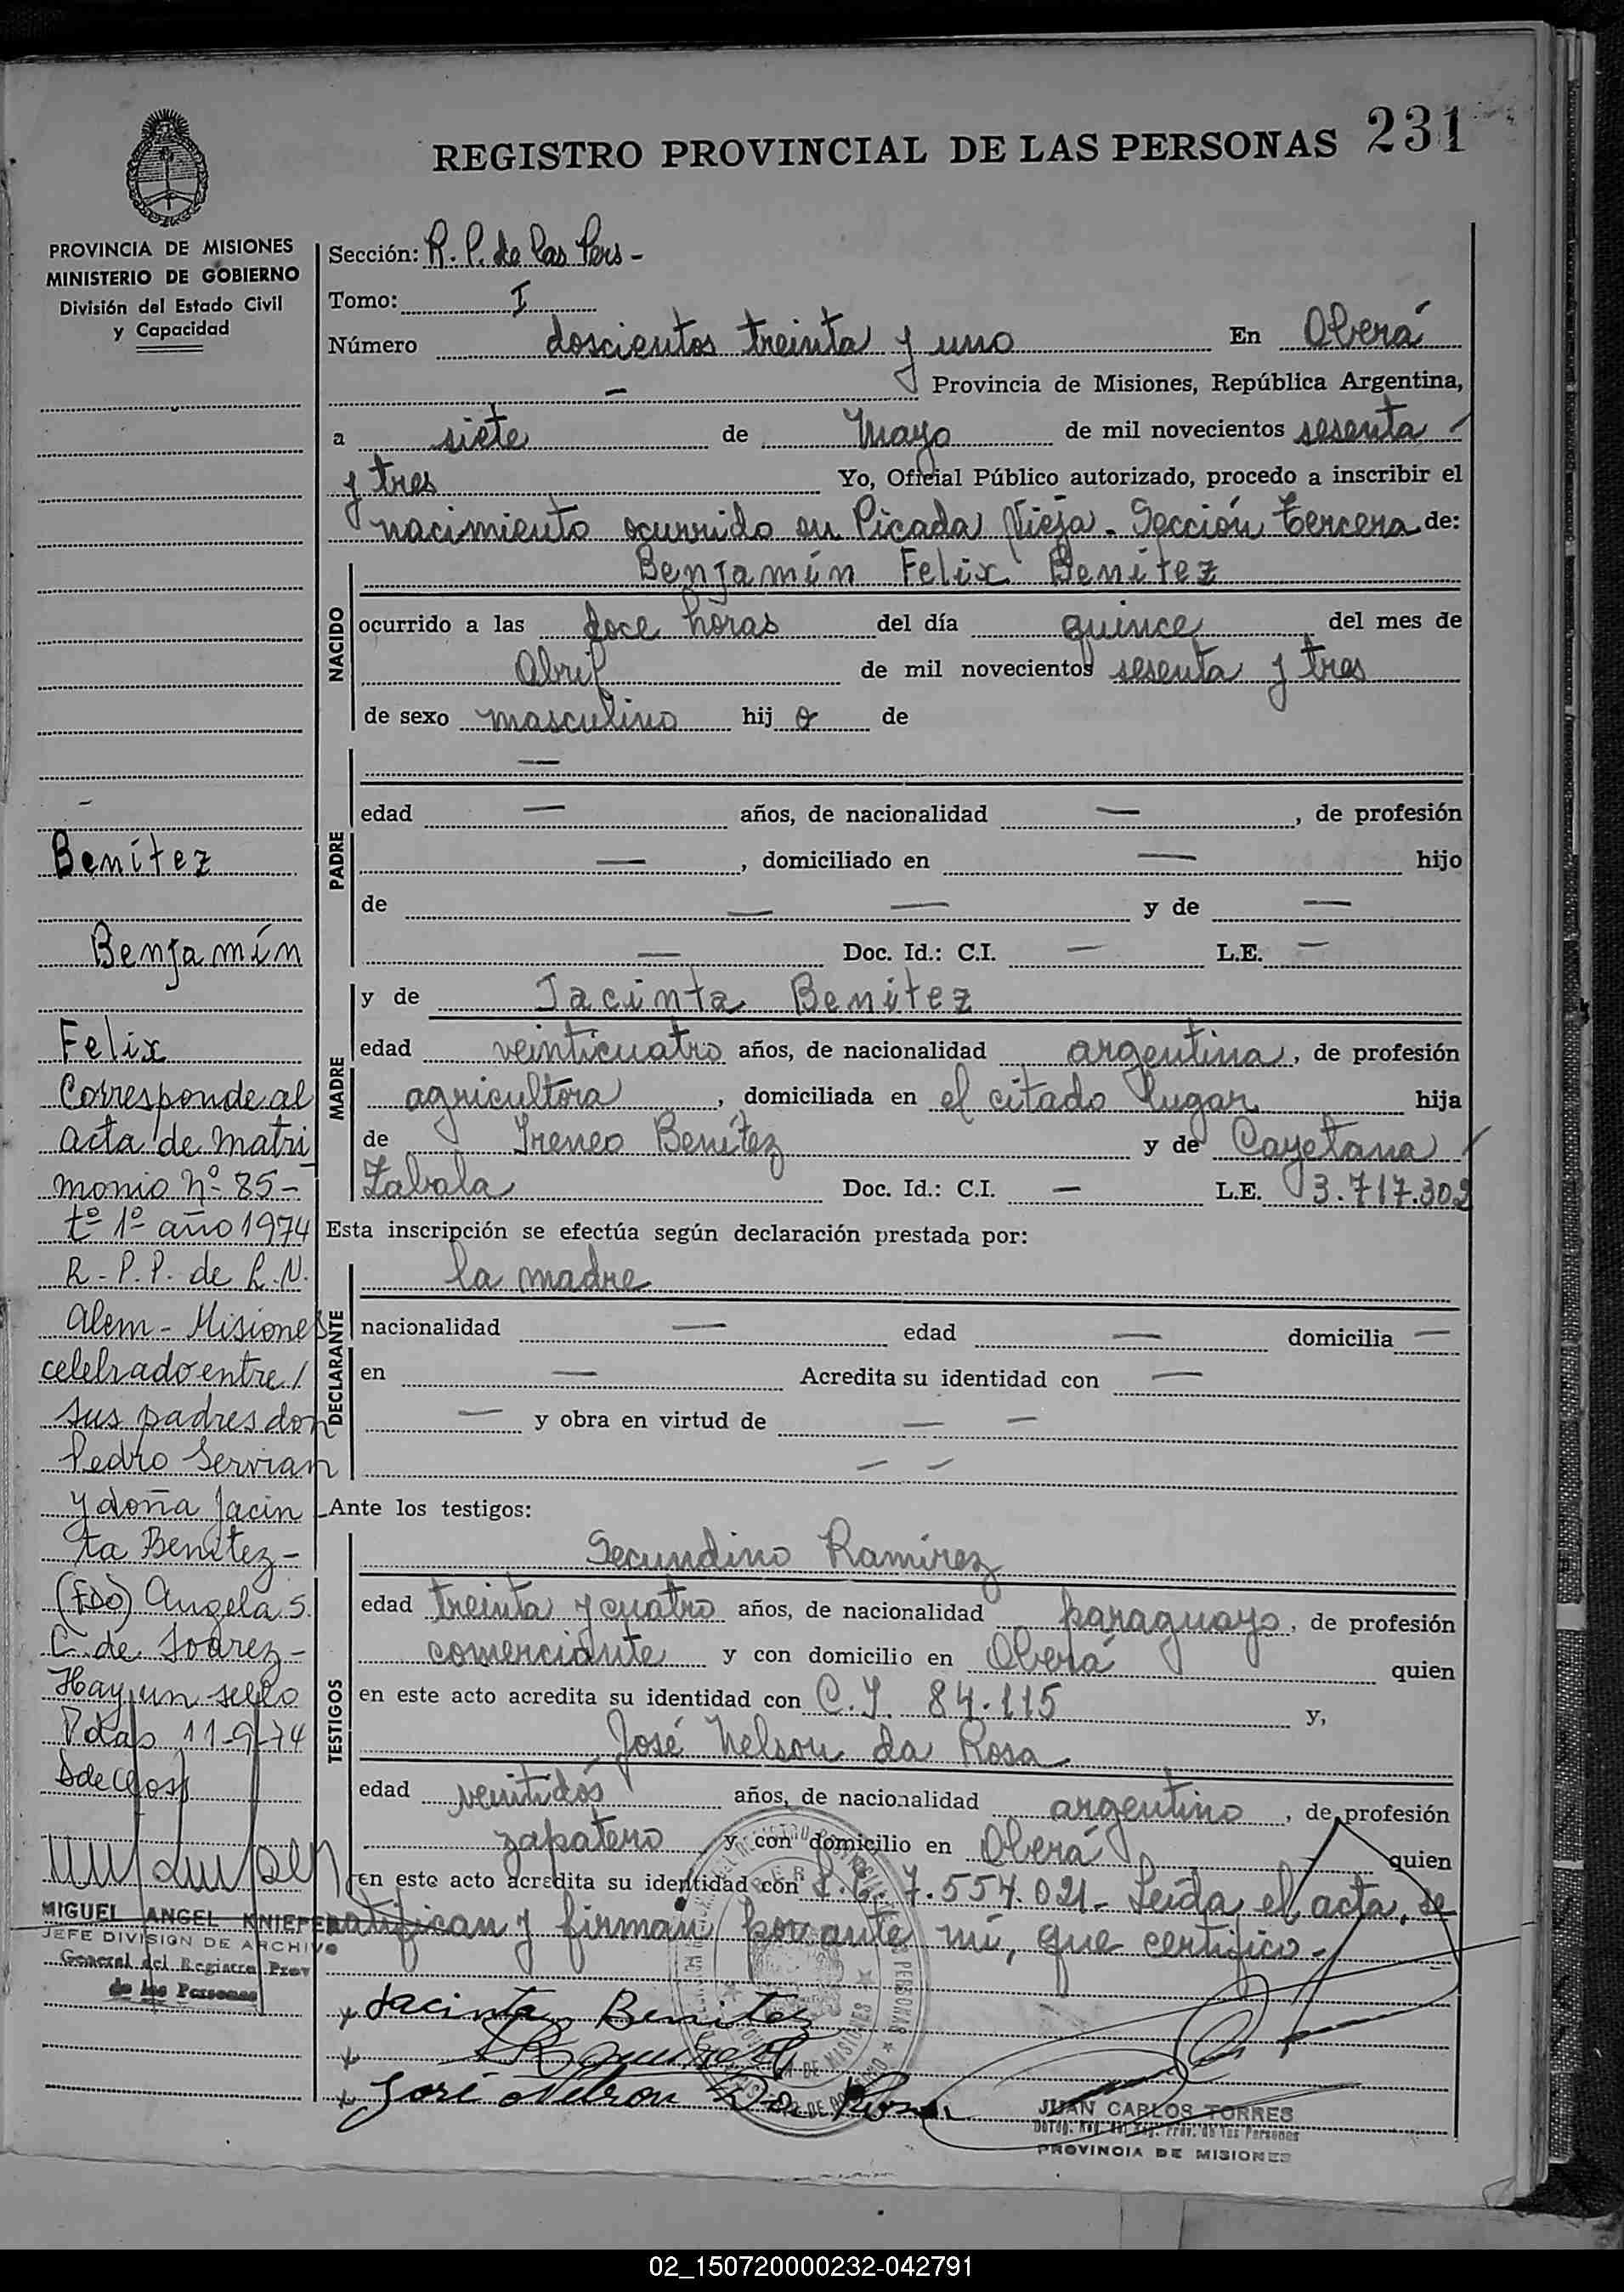 REGISTRO PROVINCIAL DE LAS PERSONAS 231
PROVINCIA DE MISIONES
MINISTERIO DE GOBIERNO
División del Estado Civil
y Capacidad
Benítez
Benjamín
Felix
Corresponde al
acta de matri
monio Nº 85-
tº 1º año 1974
R.P.P. de L.N.
Alem - Misiones
celebrado entre/
sus padres don
Pedro Servian
y doña Jacin
ta Benitez-
(FDO) Angela S.
C. de Soarez-
Hay un sello
Pdas 11-9-74
MIGUEL ANGEL KNIEFER
JEFE DIVISION DE ARCHIVO
General del Registro Prov
de las Personas
Sección: R. P. de las Pers-
Tomo: I
Número doscientos treinta y uno En Oberá
— Provincia de Misiones, República Argentina,
a siete de Mayo de mil novecientos sesenta
y tres Yo, Oficial Público autorizado, procedo a inscribir el
nacimiento ocurrido en Picada Vieja. Sección tercera de:
NACIDO
Benjamín Felix Benitez
ocurrido a las doce horas del día quince del mes de
Abril de mil novecientos sesenta y tres
de sexo masculino hij o de
PADRE
—
edad — años, de nacionalidad —, de profesión
—, domiciliado en — hijo
de — — y de —
— Doc. Id.: C.I. — L.E. —
MADRE
y de Jacinta Benitez
edad veinticuatro años, de nacionalidad argentina, de profesión
agricultora, domiciliada en el citado lugar hija
de Ireneo Benítez y de Cayetana
Zabala Doc. Id.: C.I. — L.E. 3.717.302
Esta inscripción se efectúa según declaración prestada por:
DECLARANTE
la madre
nacionalidad — edad — domicilia —
en — Acredita su identidad con —
— y obra en virtud de — —
— —
Ante los testigos:
TESTIGOS
Secundino Ramírez
edad treinta y cuatro años, de nacionalidad paraguayo, de profesión
comerciante y con domicilio en Oberá quien
en este acto acredita su identidad con C.I. 84.115 y,
José Nelson da Rosa
edad veintidós años, de nacionalidad argentino, de profesión
zapatero y con domicilio en Oberá quien
en este acto acredita su identidad con L.E. 7.554.021- Leída el acta, se
ratifican y firman por ante mí, que certifico-
Jacinta Benitez
José Nelson Da Rosa
JUAN CARLOS TORRES
PROVINCIA DE MISIONES
02_150720000232-042791